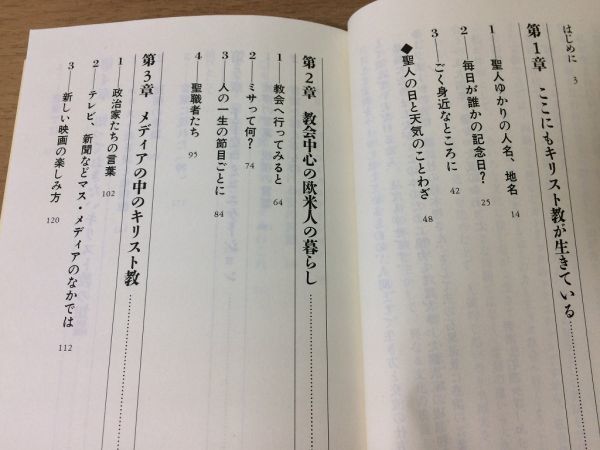 はじめに 3
第1章 ここにもキリスト教が生きている…………
1―聖人ゆかりの人名、地名 14
2―毎日が誰かの記念日? 25
3―ごく身近なところに 42
◆聖人の日と天気のことわざ 48
第2章 教会中心の欧米人の暮らし…………
1 教会へ行ってみると 64
2―ミサって何? 74
3 人の一生の節目ごとに 84
4 聖職者たち 95
第3章 メディアの中のキリスト教
1―政治家たちの言葉 102
2―テレビ、新聞などマス・メディアのなかでは 112
3―新しい映画の楽しみ方 120